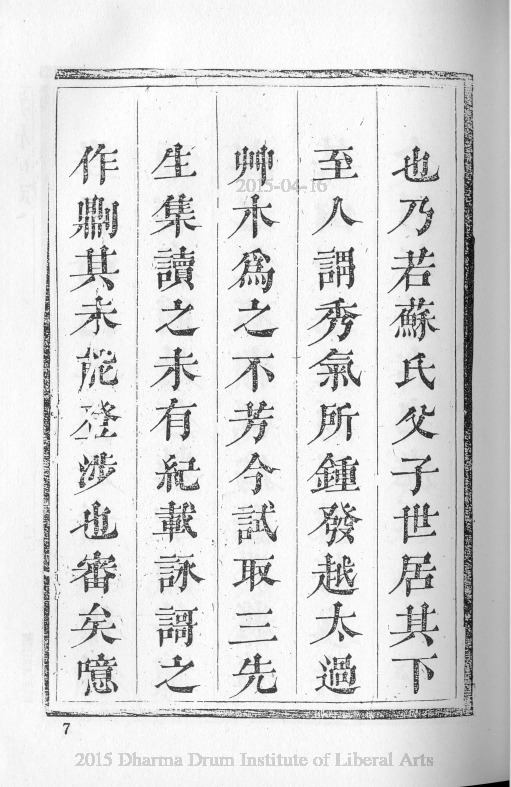 也乃若蘇氏父子世居其下
至人謂秀氣所鍾發越太過
艸木爲之不芳今試取三先
生集讀之未有紀載詠謌之
作則其未能登涉也審矣噫
7
2015-04-16
2015 Dharma Drum Institute of Liberal Arts